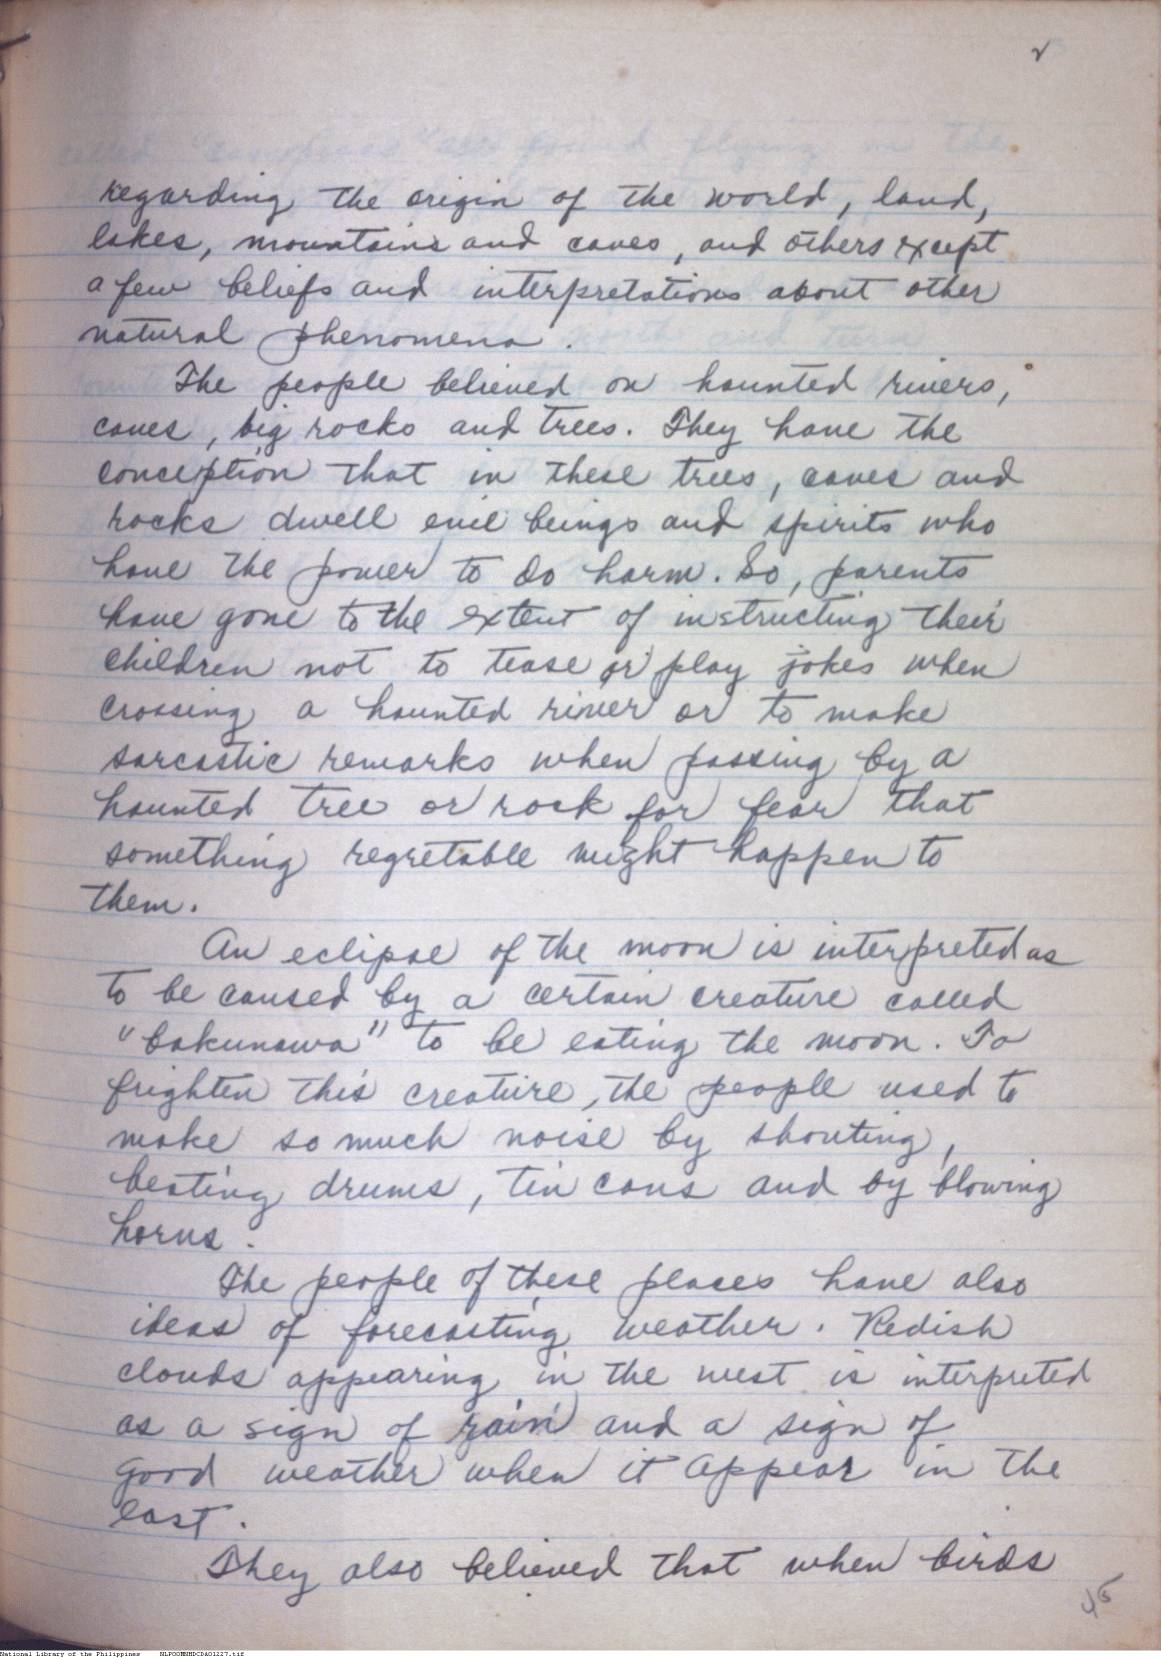 2
regarding the origin of the world, land,
lakes, mountains and caves, and others except
a few beliefs and interpretations about other
natural phenomena.
The people believed on haunted rivers,
caves, big rocks and trees. They have the
conception that in these trees, caves and
rocks dwell evil beings and spirits who
have the power to do harm. So, parents
have gone to the extent of instructing their
children not to tease or play jokes when
crossing a haunted river or to make
sarcastic remarks when passing by a
haunted tree or rock for fear that
something regretable might happen to
them.
An eclipse of the moon is interpreted as
to be caused by a certain creature called
"bakunawa" to be eating the moon. To
frighten this creature, the people used to
make so much noise by shouting,
beating drums, tin cans and by blowing
horns.
The people of these places have also
ideas of forecasting weather. Redish
clouds appearing in the west is interpreted
as a sign of rain and a sign of
good weather when it appear in the
east.
They also believed that when birds
45
National Library of the Philippines NLPOOMNHDCDA01227.tif